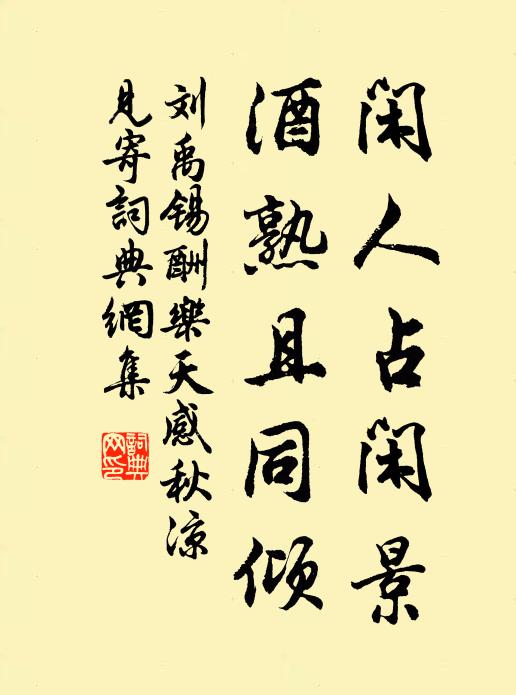 闲人占闲景
酒熟且同倾
刘禹锡酬樂天感秋涼
見寄詞典網集
詞典网印